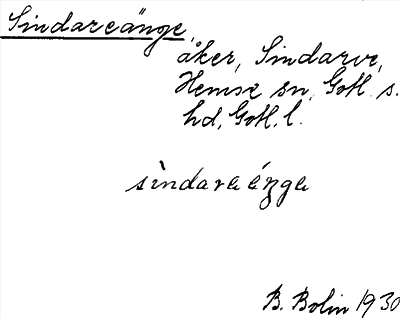 Sindareänge,
åker, Sindarve,
Hemse sn, Gotl. s.
hd, Gotl. l.
sìndara ánga
B. Bolin 1930